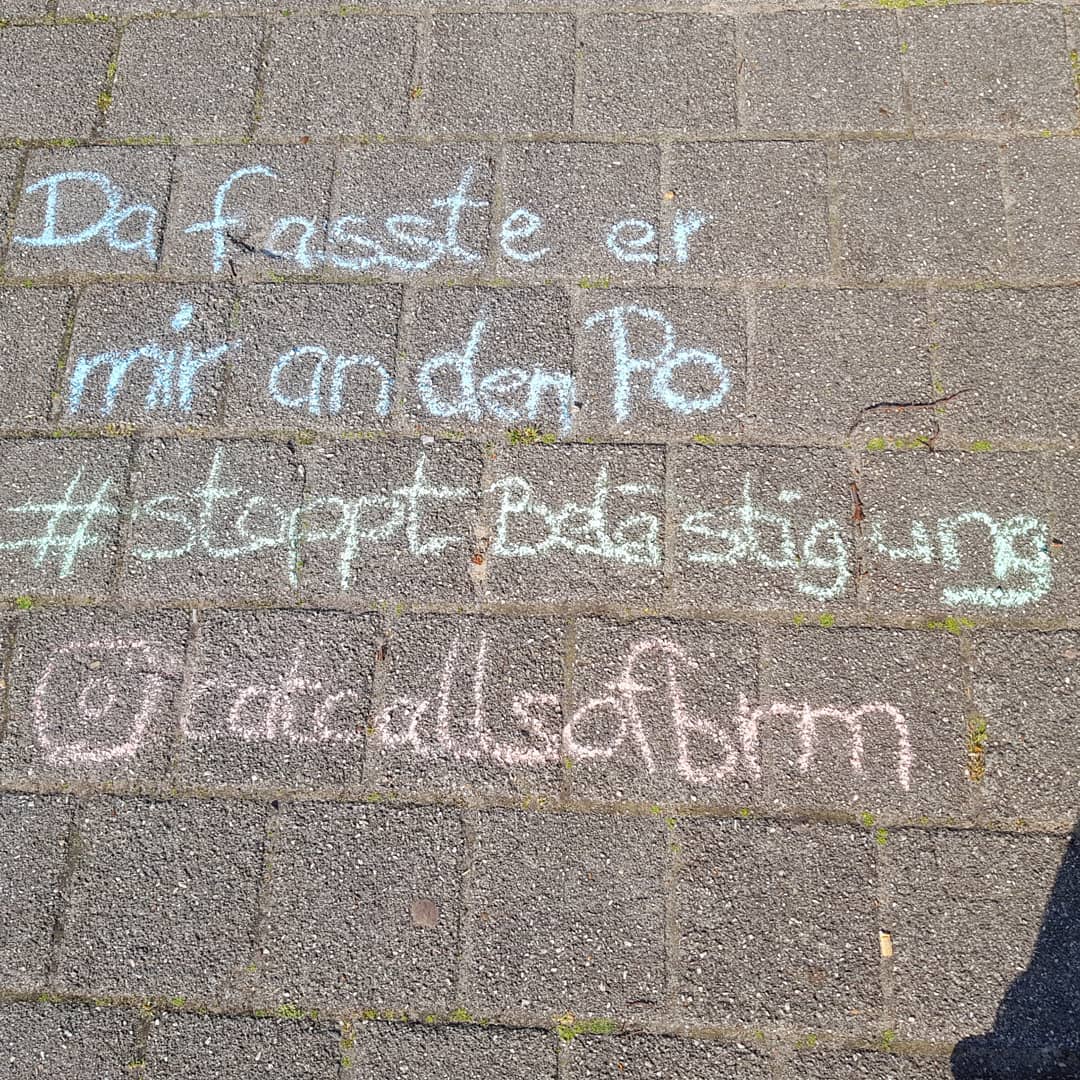 Da fasste er
mir an den Po
#stopptBelästigung
catcallsofbrm